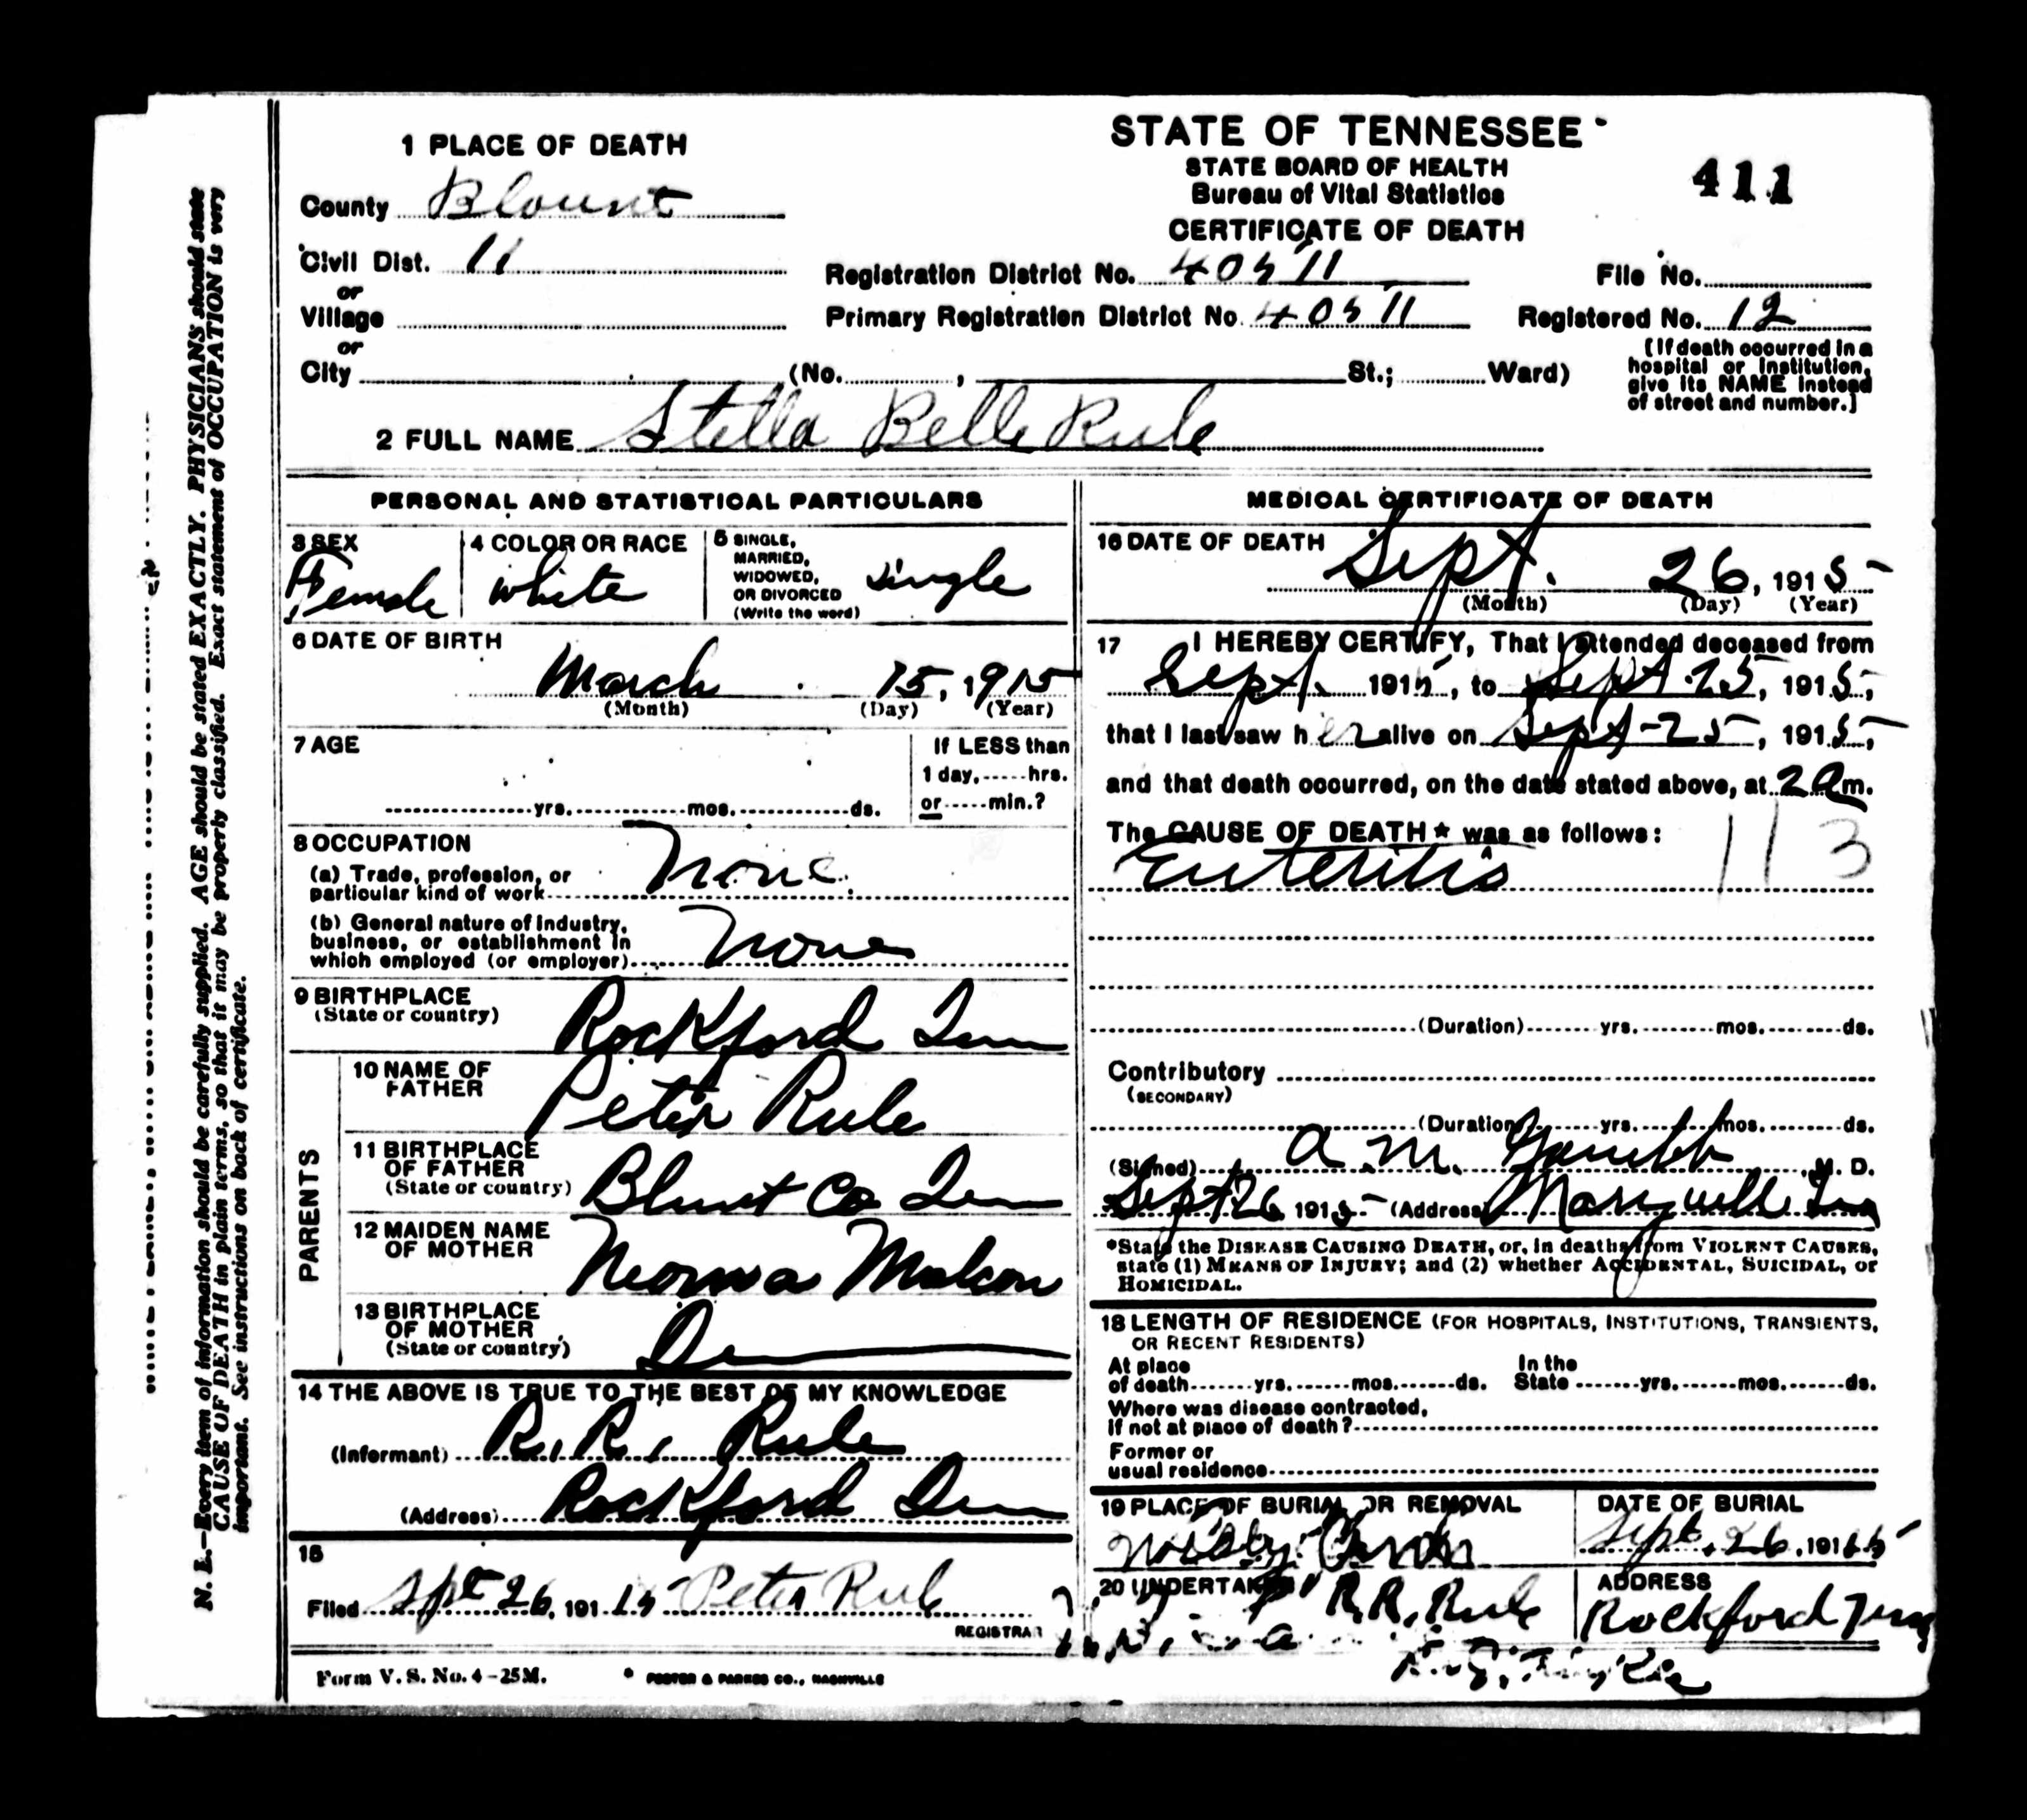 1 PLACE OF DEATH
County Blount
Civil Dist. 11
or
Village
or
City (No. , St.; Ward)
STATE OF TENNESSEE
STATE BOARD OF HEALTH
Bureau of Vital Statistics
CERTIFICATE OF DEATH
411
Registration District No. 40511 File No.
Primary Registration District No. 40511 Registered No. 12
[If death occurred in a
hospital or institution,
give its NAME instead
of street and number.]
2 FULL NAME Stella Belle Rule
PERSONAL AND STATISTICAL PARTICULARS
3 SEX
Female
4 COLOR OR RACE
White
5 SINGLE,
MARRIED,
WIDOWED,
OR DIVORCED
(Write the word)
single
6 DATE OF BIRTH
March 15, 1915
(Month) (Day) (Year)
7 AGE
yrs. mos. ds.
If LESS than
1 day, hrs.
or min.?
8 OCCUPATION
(a) Trade, profession, or
particular kind of work None
(b) General nature of industry,
business, or establishment in
which employed (or employer) None
9 BIRTHPLACE
(State or country)
Rockford Tenn
PARENTS
10 NAME OF
FATHER
Peter Rule
11 BIRTHPLACE
OF FATHER
(State or country)
Blunt Co Tenn
12 MAIDEN NAME
OF MOTHER
13 BIRTHPLACE
OF MOTHER
(State or country)
Tenn
14 THE ABOVE IS TRUE TO THE BEST OF MY KNOWLEDGE
(Informant) R. R. Rule
(Address) Rockford Tenn
15
Filed Sept 26, 191 15 Peter Rule
REGISTRAR
Form V. S. No. 4-25M.
FOSTER & PARKES CO., NASHVILLE
MEDICAL CERTIFICATE OF DEATH
16 DATE OF DEATH
Sept. 26, 1915
(Month) (Day) (Year)
17 I HEREBY CERTIFY, That I attended deceased from
Sept. 1915, to Sept. 25, 1915,
that I last saw her alive on Sept-25, 1915,
and that death occurred, on the date stated above, at 2 am.
The CAUSE OF DEATH* was as follows:
Enteritis 113
(Duration) yrs. mos. ds.
Contributory
(SECONDARY)
(Duration) yrs. mos. ds.
(Signed) A. M. , M. D.
Sept 26 1915 (Address) Maryville Tenn
*State the DISEASE CAUSING DEATH, or, in deaths from VIOLENT CAUSES,
state (1) MEANS OF INJURY; and (2) whether ACCIDENTAL, SUICIDAL, or
HOMICIDAL.
18 LENGTH OF RESIDENCE (FOR HOSPITALS, INSTITUTIONS, TRANSIENTS,
OR RECENT RESIDENTS)
At place
of death yrs. mos. ds.
In the
State yrs. mos. ds.
Where was disease contracted,
If not at place of death?
Former or
usual residence
19 PLACE OF BURIAL OR REMOVAL
DATE OF BURIAL
Sept. 26, 191 15
20 UNDERTAKER
R. R. Rule
ADDRESS
Rockford Tenn
N. B.—Every item of information should be carefully supplied. AGE should be stated EXACTLY. PHYSICIANS should state
CAUSE OF DEATH in plain terms, so that it may be properly classified. Exact statement of OCCUPATION is very
important. See instructions on back of certificate.